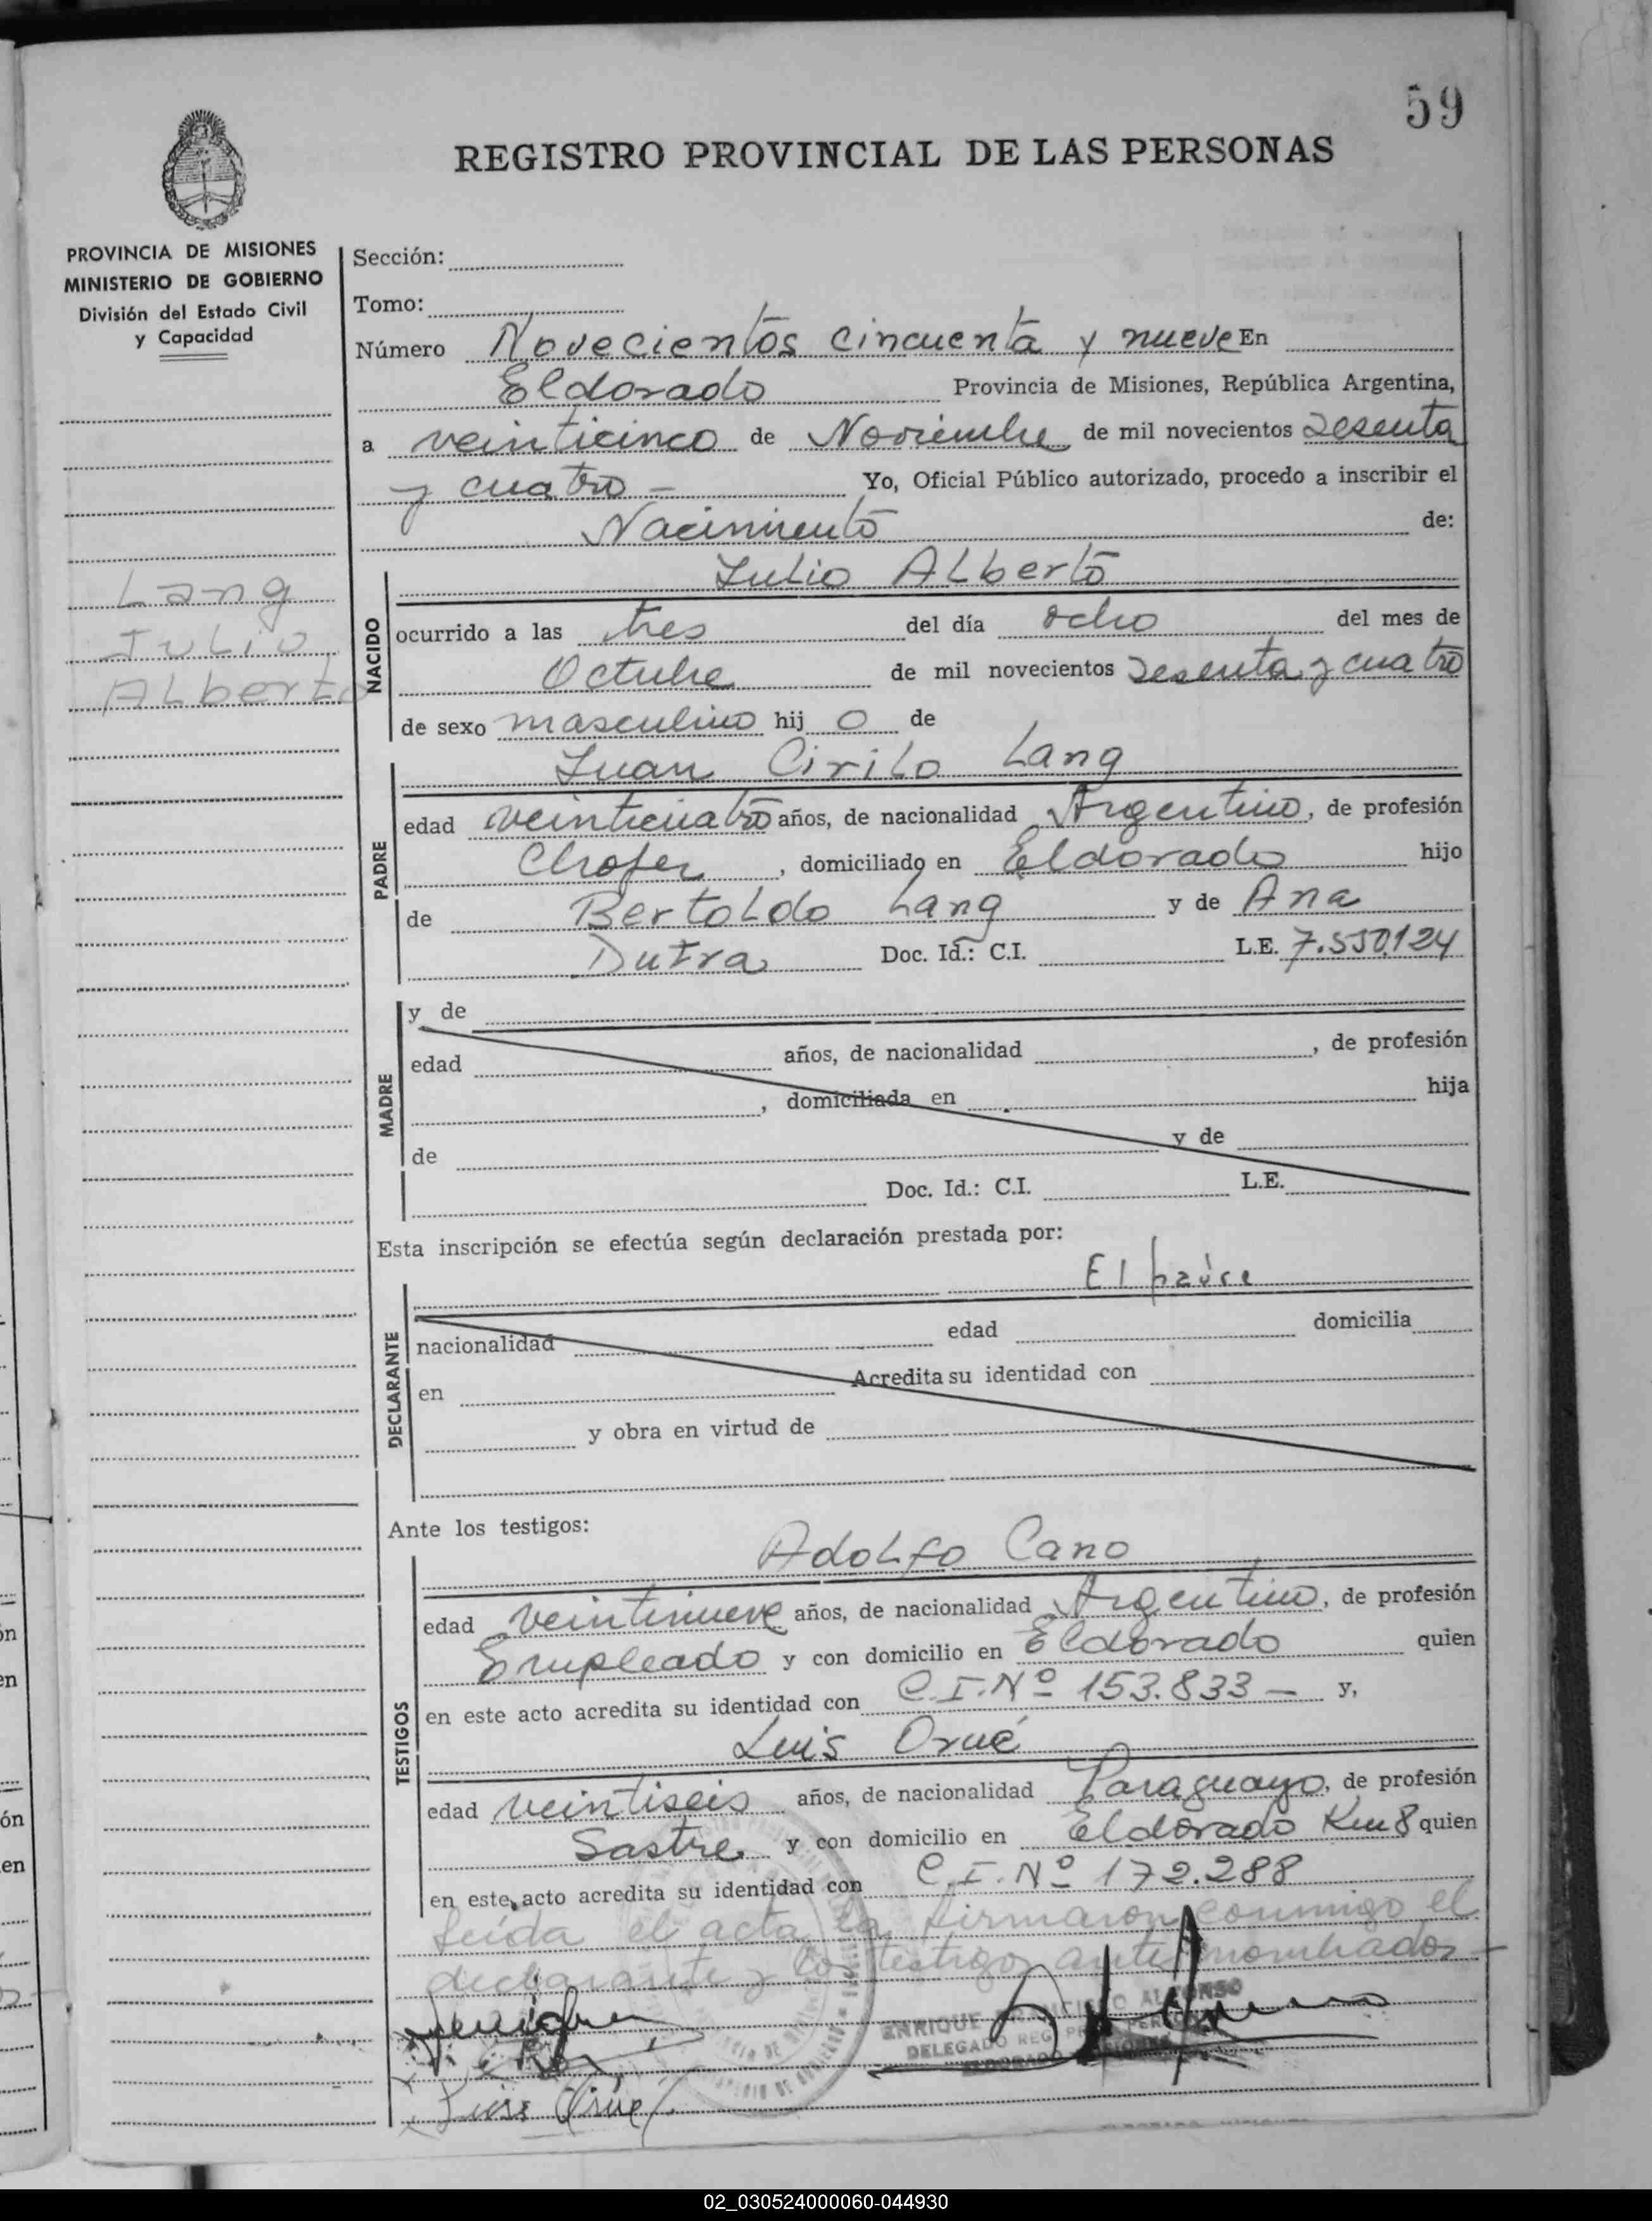 59
REGISTRO PROVINCIAL DE LAS PERSONAS
PROVINCIA DE MISIONES
MINISTERIO DE GOBIERNO
División del Estado Civil
y Capacidad
Lang
Julio
Alberto
Sección:
Tomo:
Número Novecientos cincuenta y nueve En
Eldorado Provincia de Misiones, República Argentina,
a veinticinco de Noviembre de mil novecientos sesenta
y cuatro - Yo, Oficial Público autorizado, procedo a inscribir el
Nacimiento de:
NACIDO
Julio Alberto
ocurrido a las tres del día ocho del mes de
Octubre de mil novecientos sesenta y cuatro
de sexo masculino hij o de
PADRE
Juan Cirilo Lang
edad veinticuatro años, de nacionalidad Argentino, de profesión
Chofer, domiciliado en Eldorado hijo
de Bertoldo Lang y de Ana
Dutra Doc. Id.: C.I. L.E. 7.550.124
MADRE
y de
edad años, de nacionalidad , de profesión
, domiciliada en hija
de y de
Doc. Id.: C.I. L.E.
Esta inscripción se efectúa según declaración prestada por:
El padre
DECLARANTE
nacionalidad edad domicilia
en Acredita su identidad con
y obra en virtud de
Ante los testigos:
TESTIGOS
Adolfo Cano
edad veintinueve años, de nacionalidad Argentino, de profesión
Empleado y con domicilio en Eldorado quien
en este acto acredita su identidad con C.I. Nº 153.833 - y,
Luis Orué
edad veintiseis años, de nacionalidad Paraguayo, de profesión
Sastre y con domicilio en Eldorado Km 8 quien
en este acto acredita su identidad con C.I. Nº 172.288
Leída el acta la firmaron conmigo el
declarante y los testigos antes nombrados -
ENRIQUE FRANCISCO ALFONSO
DELEGADO REG. PROV. PERSONAS
ELDORADO MISIONES
Luis Orué
02_030524000060-044930